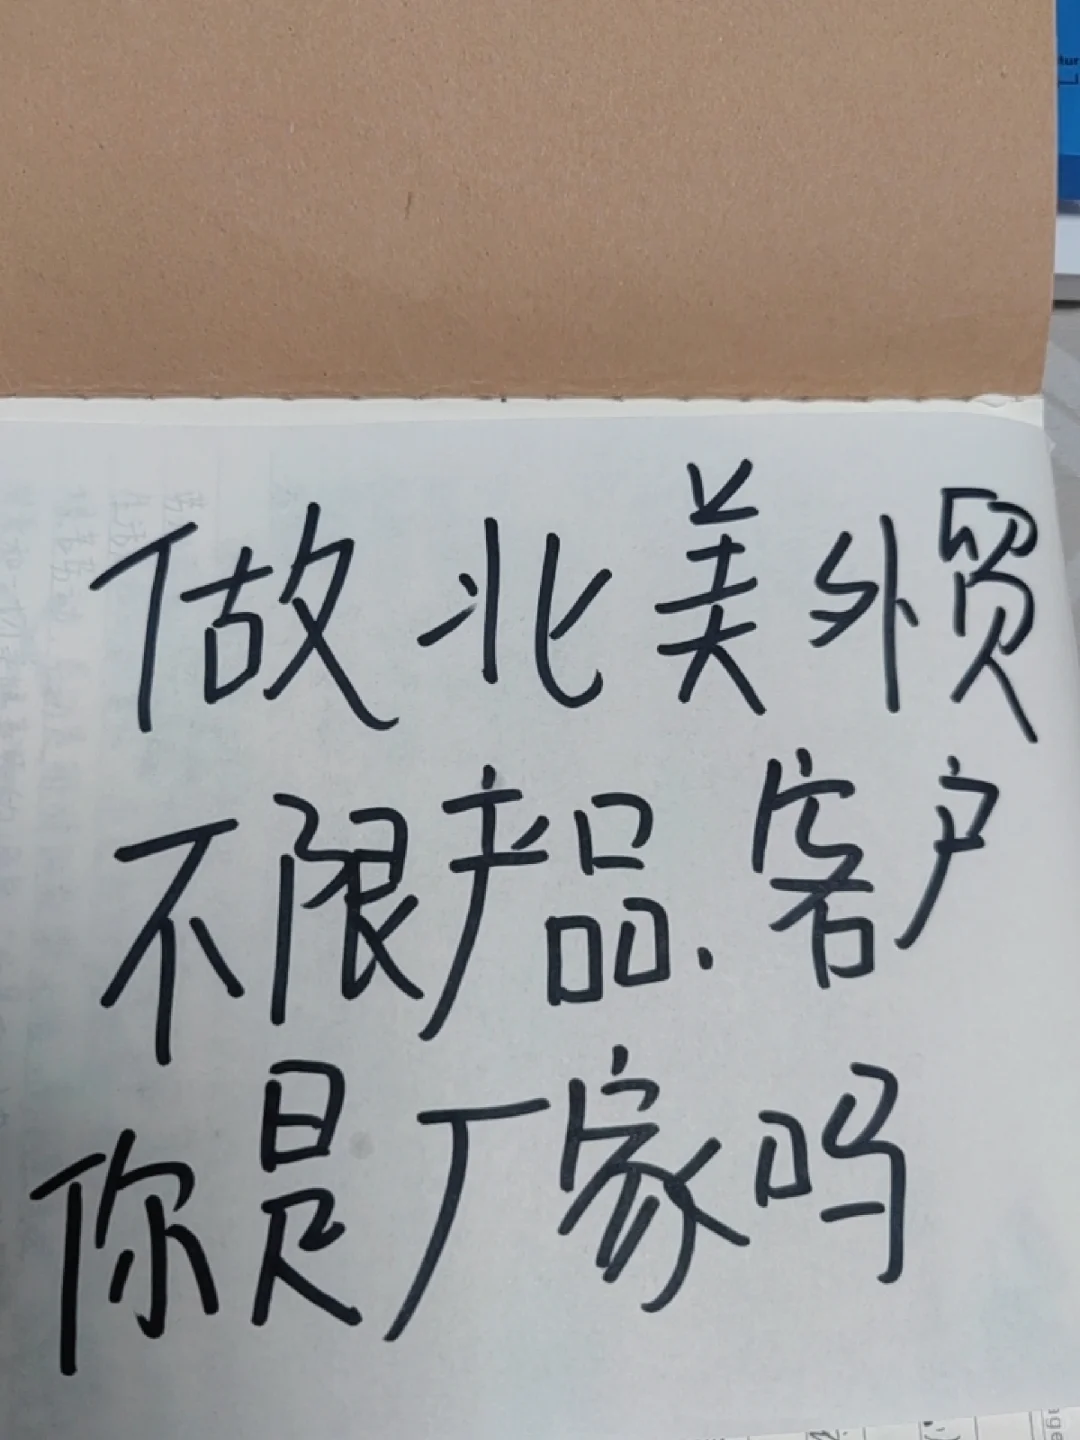 做北美外贸
不限产品、客户
你是厂家吗